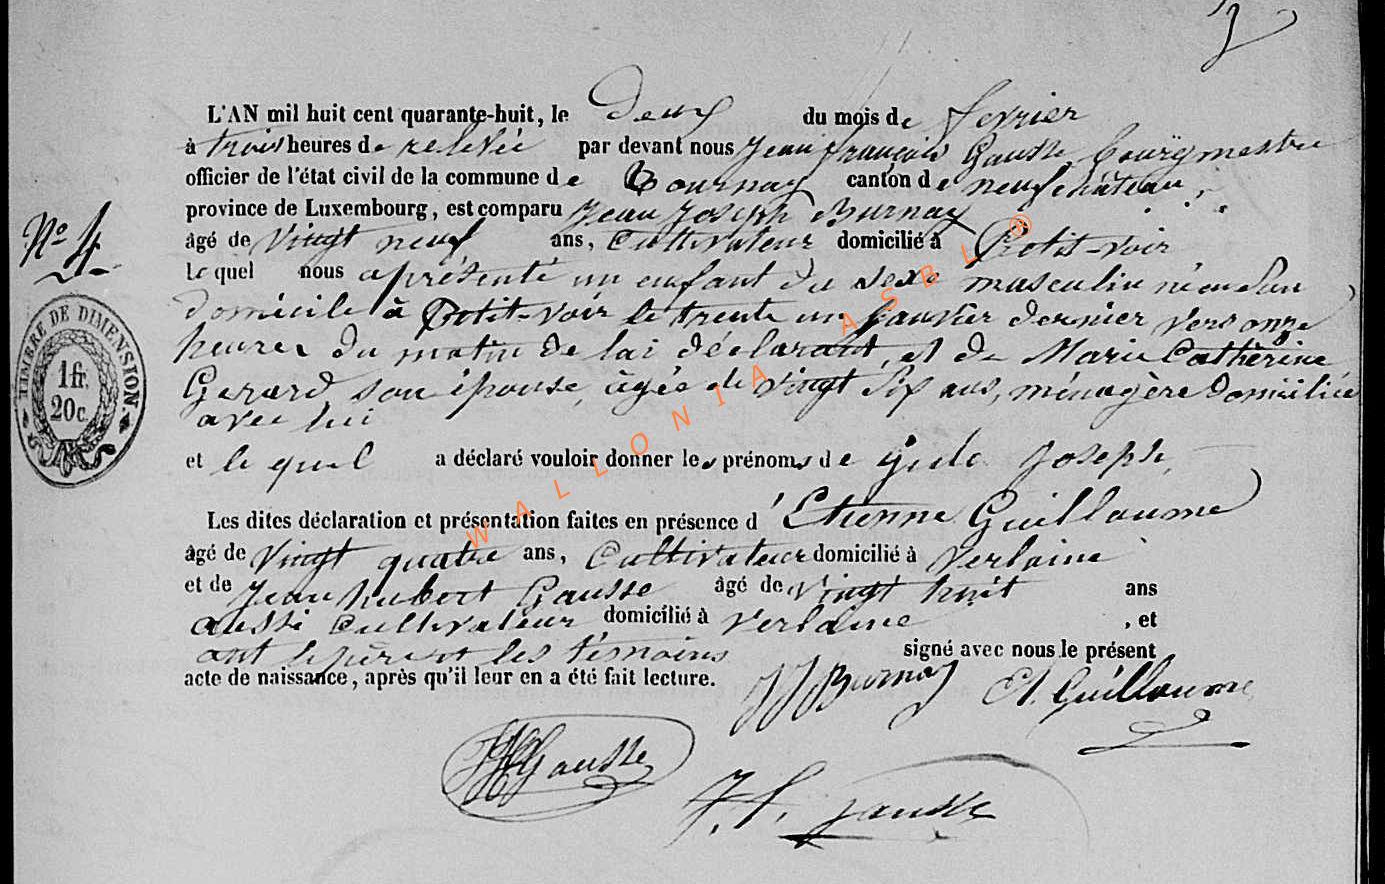 2
L'AN mil huit cent quarante-huit, le deux du mois de fevrier
à trois heures de relevée par devant nous Jean françois Gausse, bourgmestre
officier de l'état civil de la commune de Tournay canton de neufchâteau,
province de Luxembourg, est comparu Jean Joseph Burnay
N° 4
âgé de Vingt neuf ans, Cultivateur domicilié à Petit-voir
lequel nous a présenté un enfant du sexe masculin né en son
domicile à Petit-voir le trente un janvier dernier vers onze
heures du matin de lui déclarant, et de Marie Catherine
Gerard son épouse, âgée de vingt six ans, ménagère domiciliée
avec lui
TIMBRE DE DIMENSION.
1 fr.
20 c.
et lequel a déclaré vouloir donner les prénoms de Joseph
Les dites déclaration et présentation faites en présence d'Etienne Guillaume
âgé de Vingt quatre ans, Cultivateur domicilié à Verlaine
et de Jean hubert Gausse âgé de Vingt huit ans
aussi Cultivateur domicilié à Verlaine, et
ont le père et les témoins signé avec nous le présent
acte de naissance, après qu'il leur en a été fait lecture.
JJ Burnay Et. Guillaume
JH Gausse
J. f. gausse
WALLONIA ASBL ®